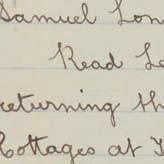 Samuel Lon
Read Le
returning th
Cottages at